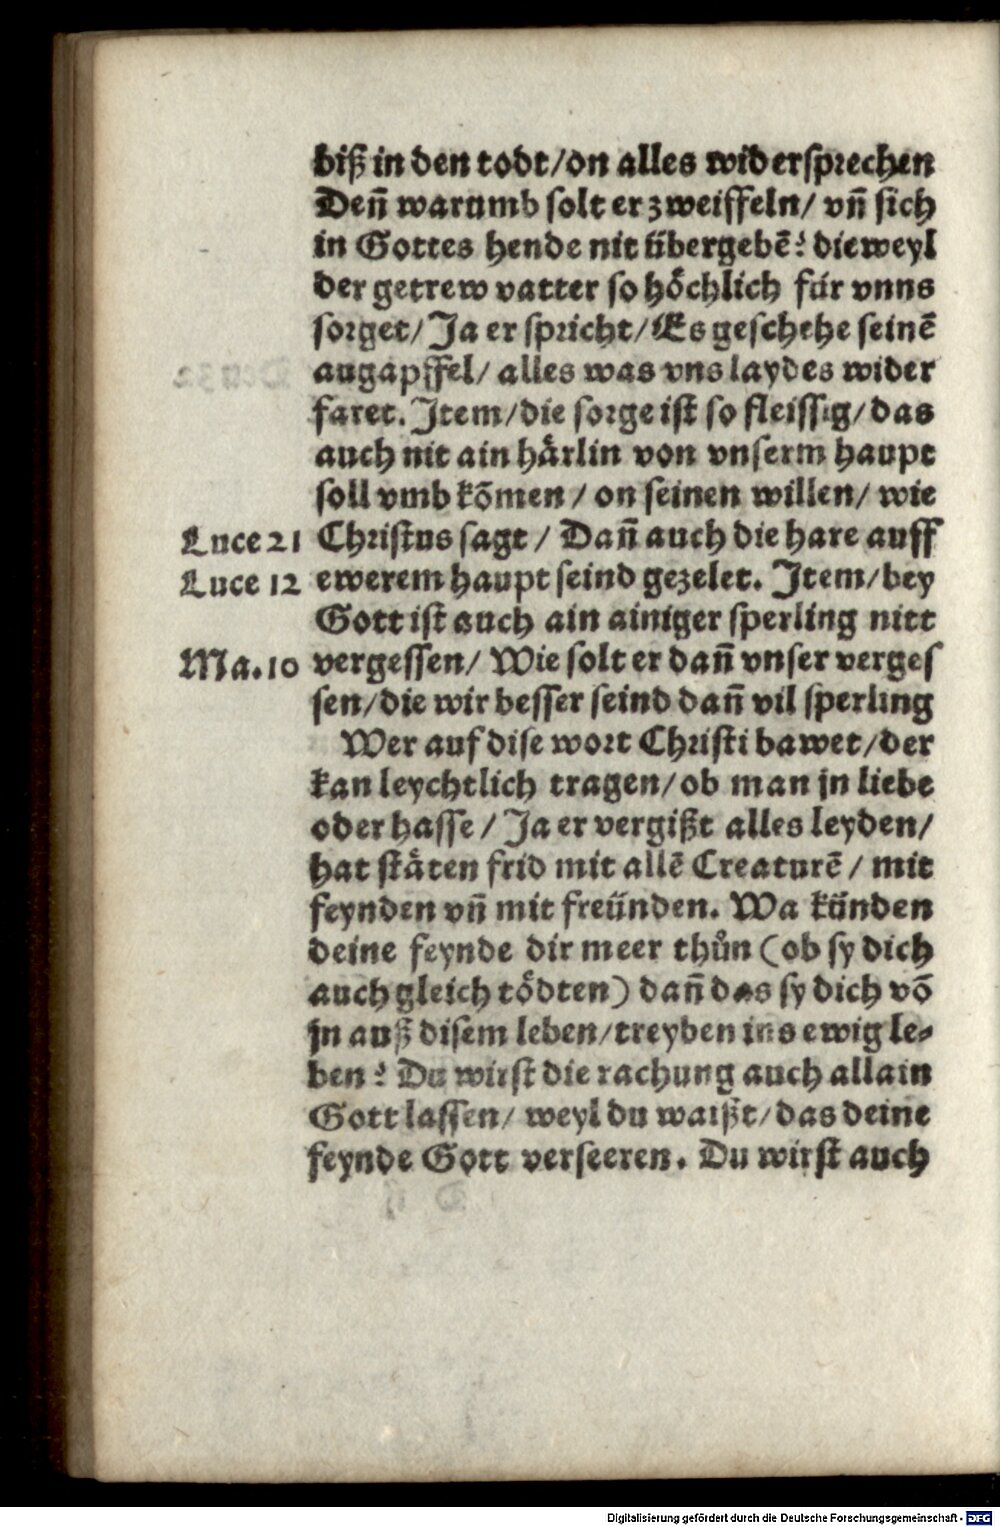 biß in den todt/on alles widersprechen
Deñ warumb solt er zweiffeln/ vñ sich
in Gottes hende nit übergebẽ? dieweyl
der getrew vatter so höchlich für vnns
sorget/ Ja er spricht/ Es geschehe seinẽ
augapffel/ alles was vns laydes wider
faret. Item/die sorge ist so fleissig/das
auch nit ain härlin von vnserm haupt
soll vmb kõmen / on seinen willen/ wie
Luce 21 Christus sagt / Dañ auch die hare auff
Luce 12 ewerem haupt seind gezelet. Item/bey
Gott ist auch ain ainiger sperling nitt
Ma.10 vergessen/ Wie solt er dañ vnser verges
sen/die wir besser seind dañ vil sperling
Wer auf dise wort Christi bawet/der
kan leychtlich tragen/ob man jn liebe
oder hasse / Ja er vergißt alles leyden/
hat stäten frid mit allẽ Creaturẽ / mit
feynden vñ mit freünden. Wa künden
deine feynde dir meer thůn (ob sy dich
auch gleich tödten) dañ das sy dich võ
jn auß disem leben/treyben ins ewig le⸗
ben? Du wirst die rachung auch allain
Gott lassen/ weyl du waißt/das deine
feynde Gott verseeren. Du wirst auch
Digitalisierung gefördert durch die Deutsche Forschungsgemeinschaft - DFG